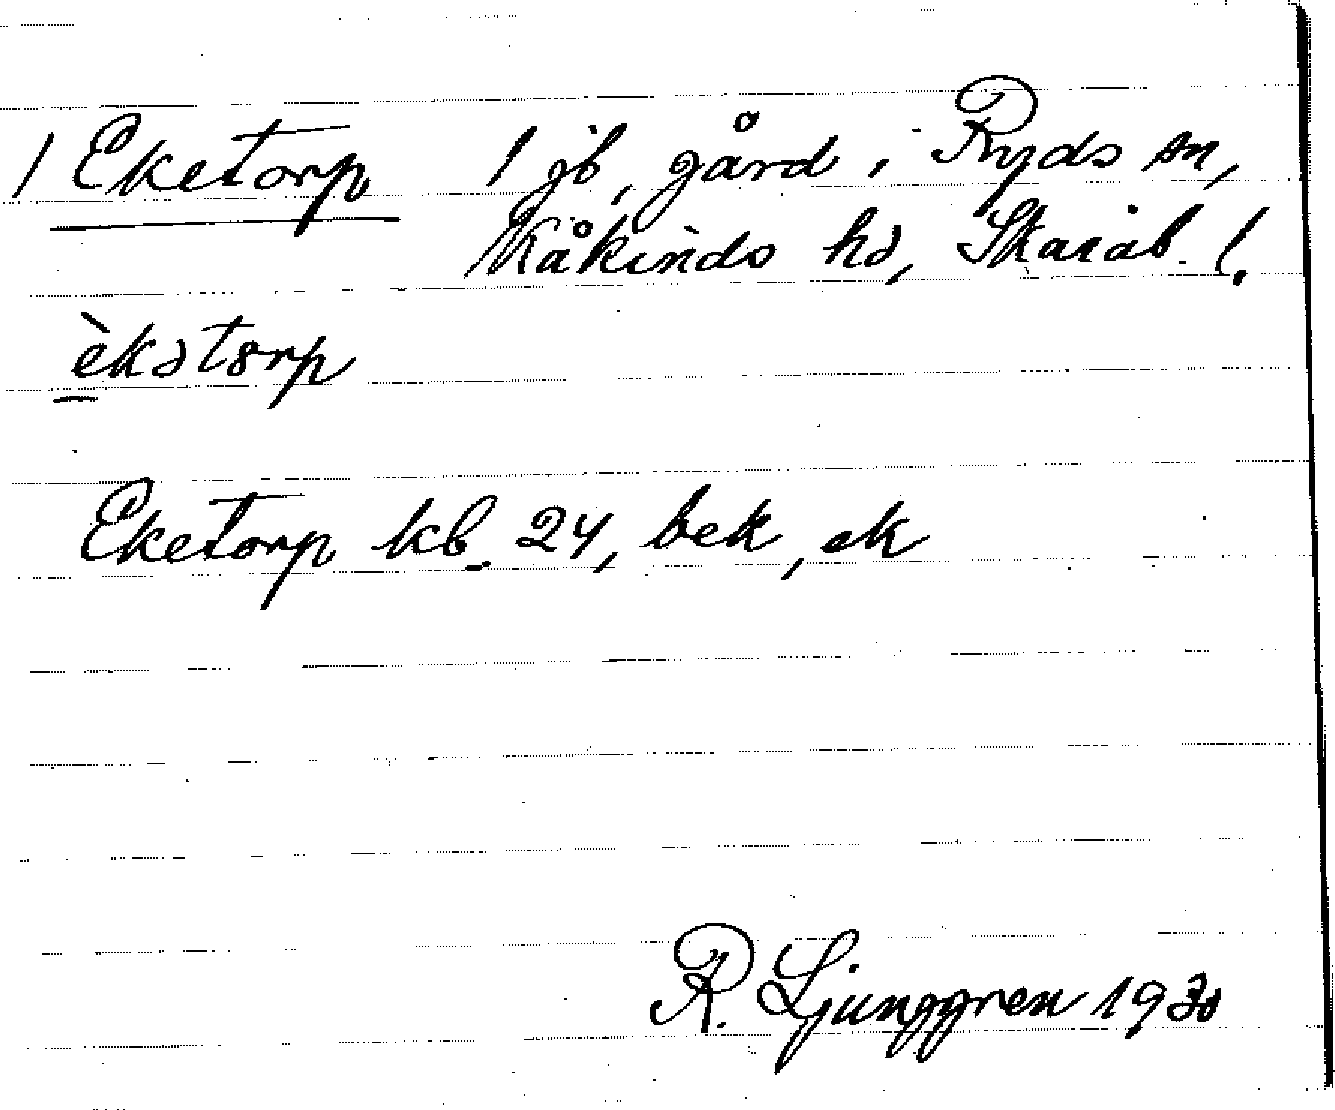 1 Eketorp 1 jb, gård i Ryds sn,
Kåkinds hd, Skarab. l.
èkətörp
Eketorp kb 24, bek, ek
R. Ljunggren 1930